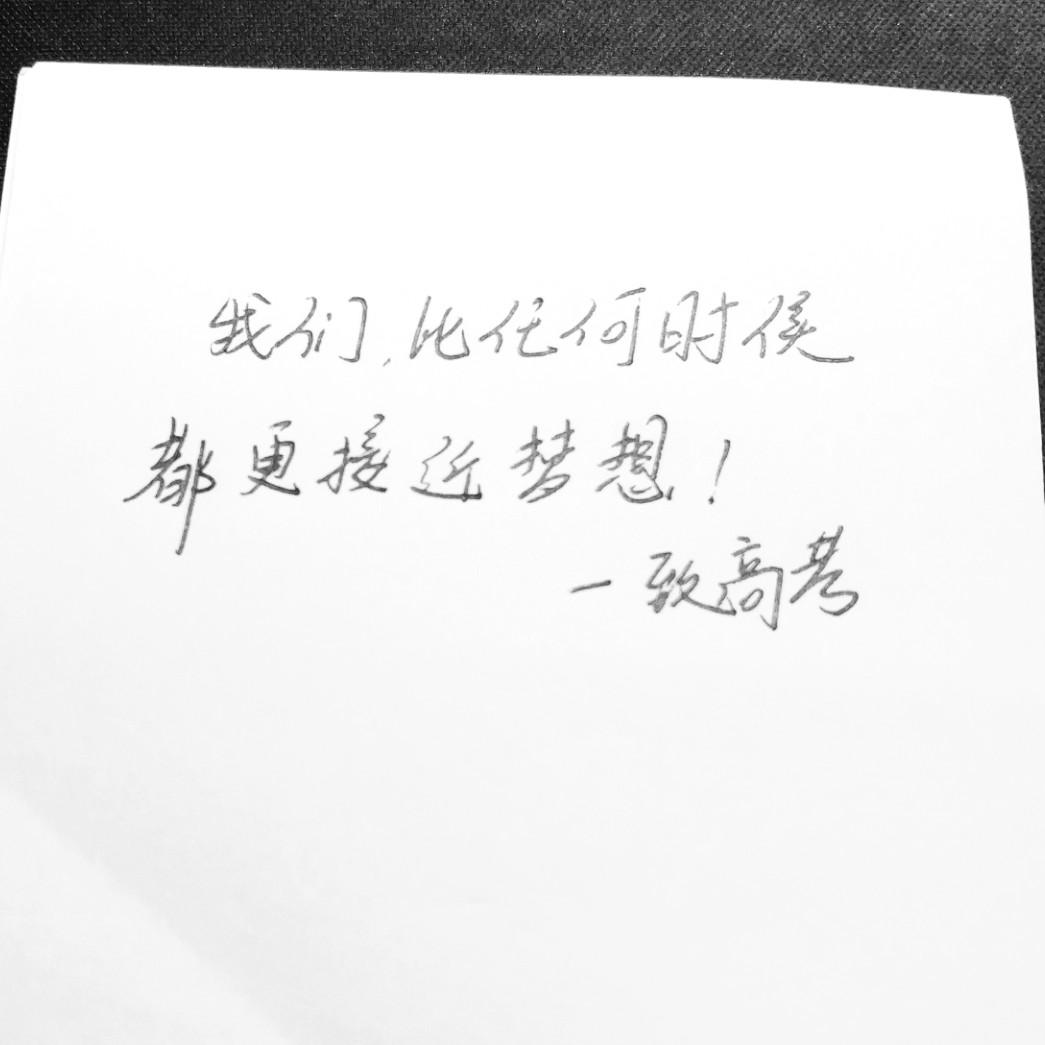 我们,比任何时候
都更接近梦想!
一致高考